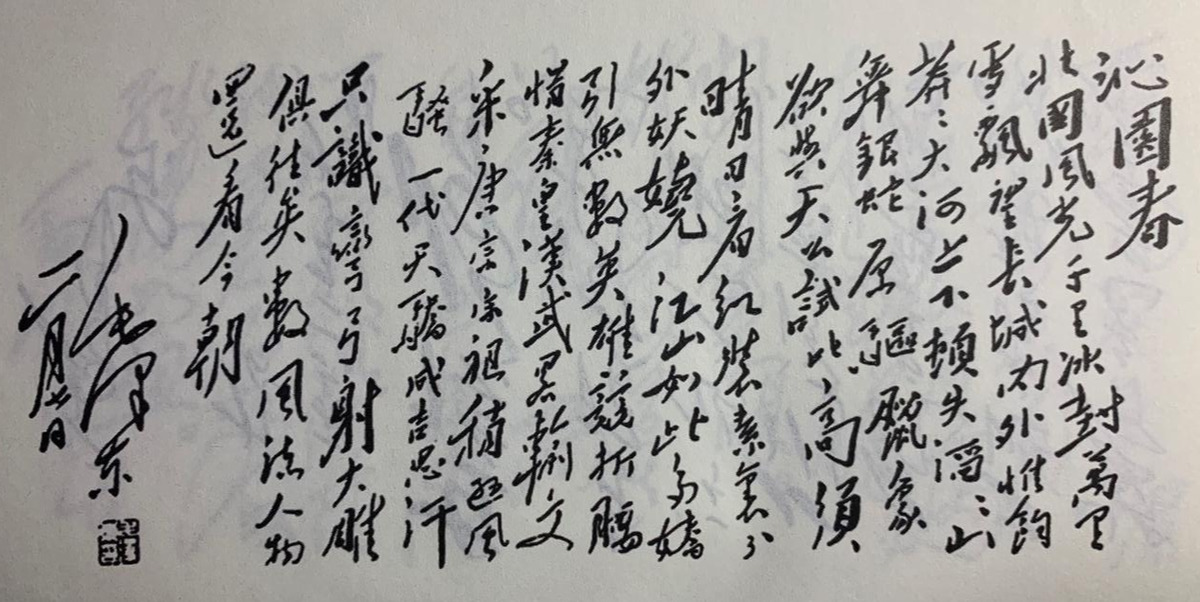 沁園春
北國風光千里冰封萬里
雪飄望長城内外惟餘
莽〻大河上下頓失滔〻山
舞銀蛇原驅臘象
欲與天公試比高須
晴日看紅裝素裹分
外妖嬈江山如此多嬌
引無數英雄競折腰
惜秦皇漢武畧輸文
采唐宗宋祖稍遜風
騷一代天驕成吉思汗
只識彎弓射大雕
俱往矣數風流人物
還看今朝
毛澤東
二月七日